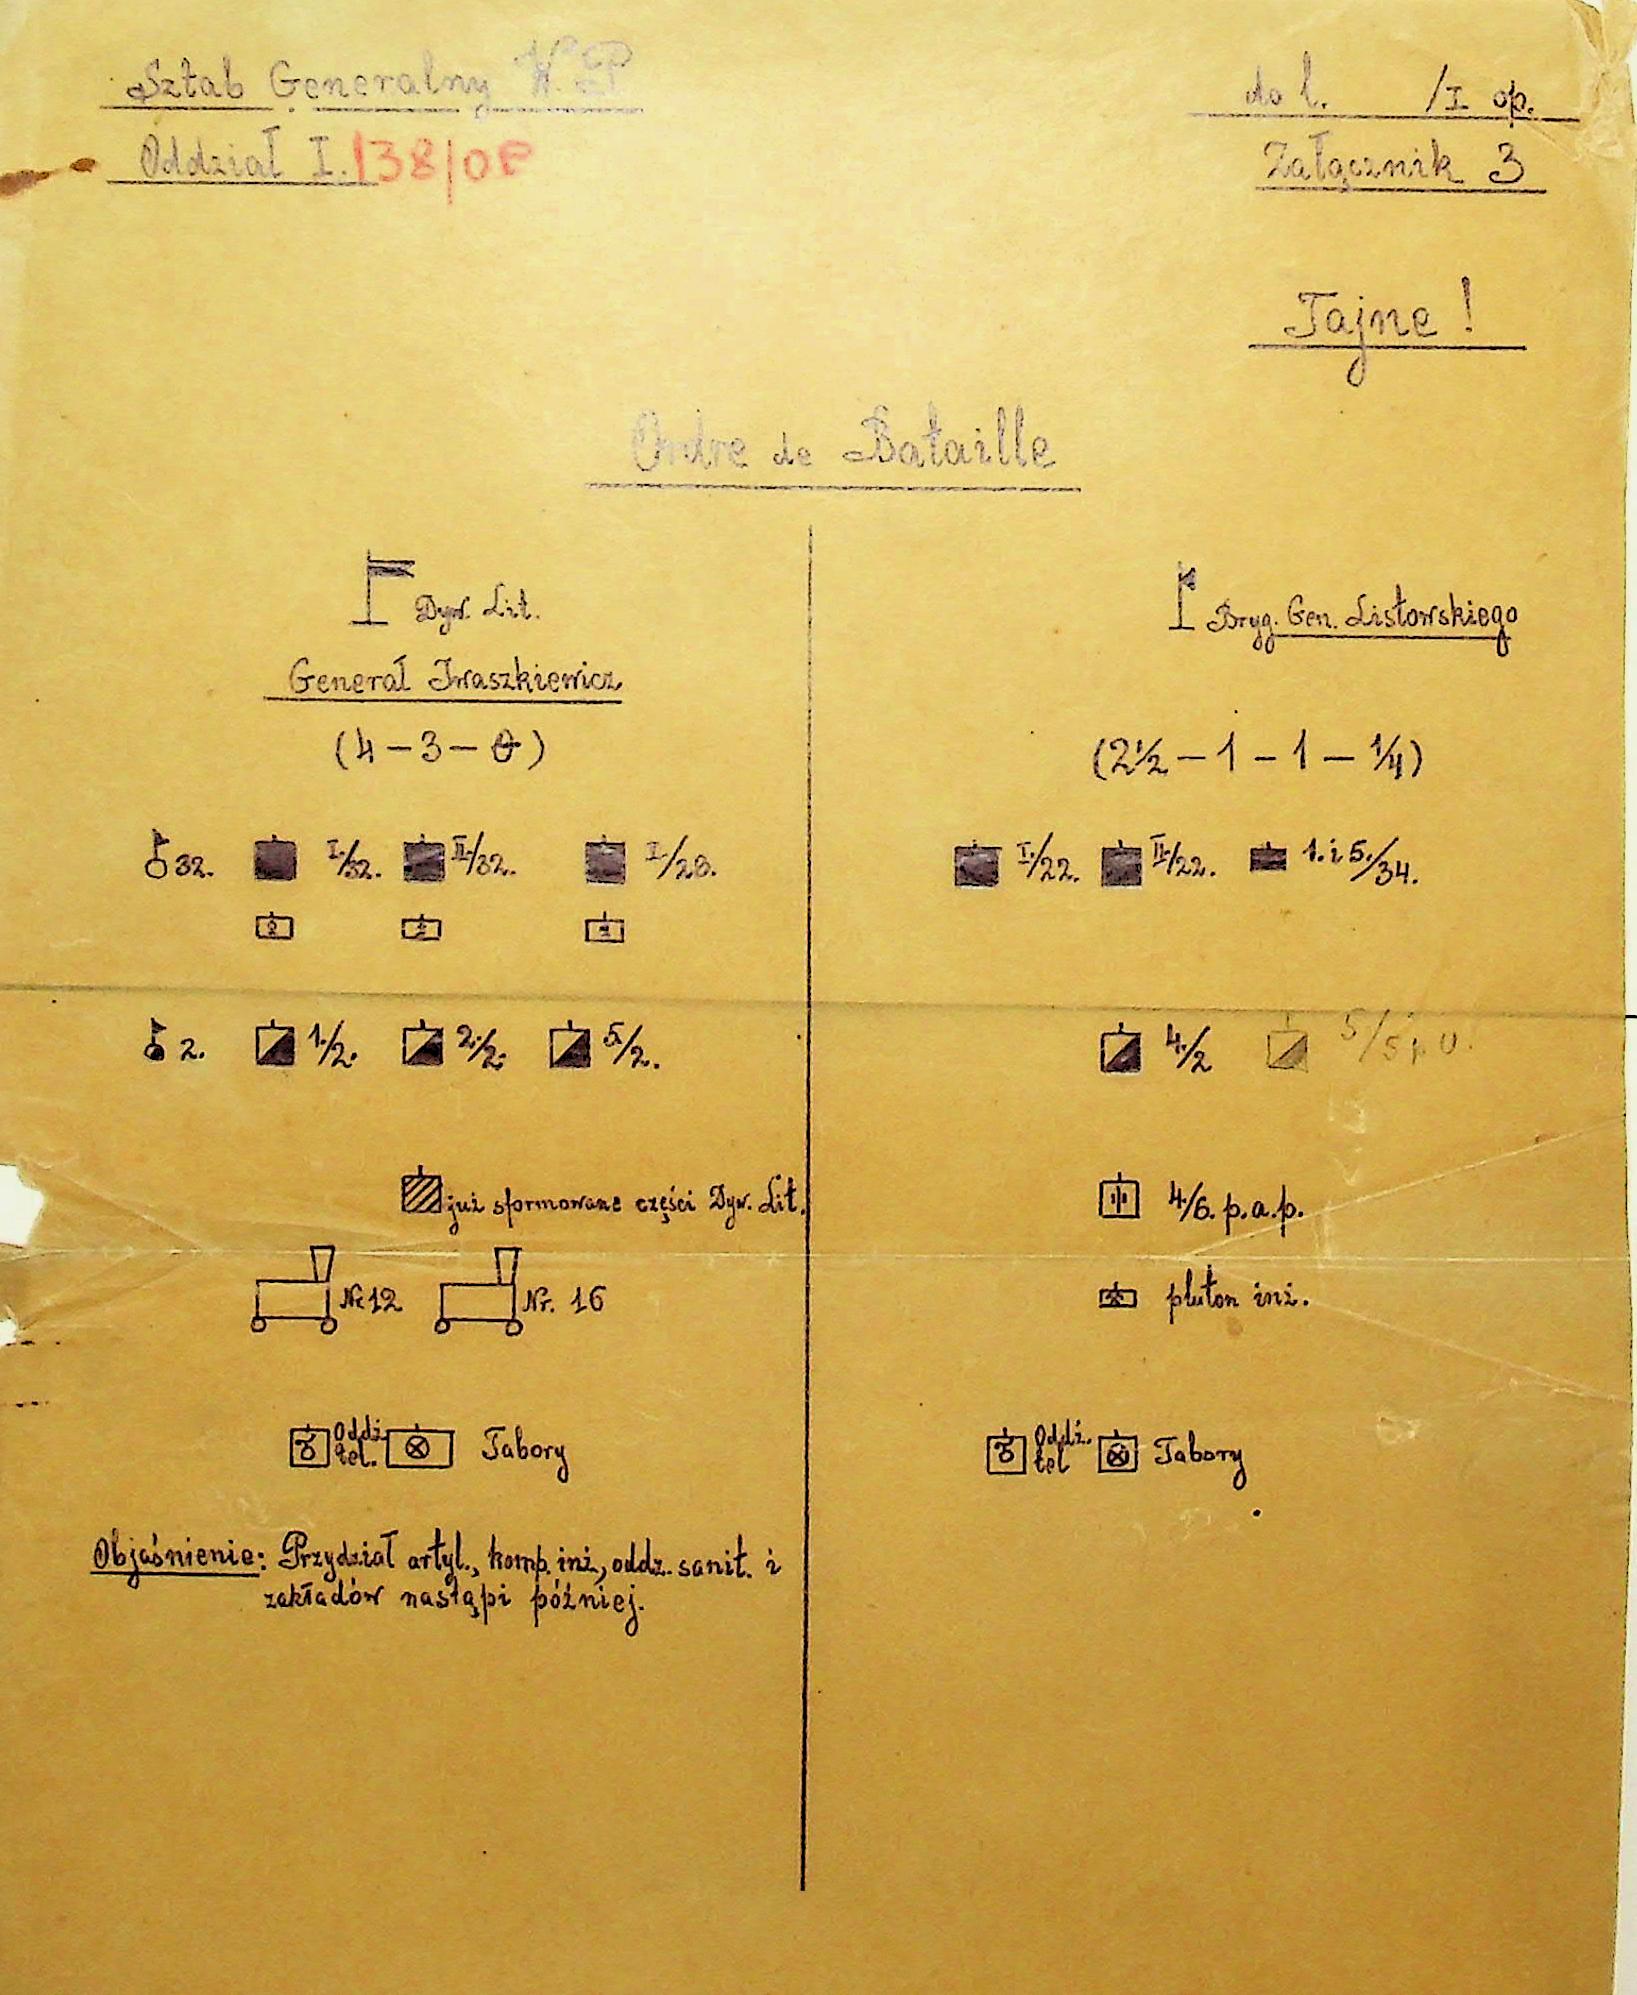 Sztab Generalny W.P.
Oddział I. 138/OP
do l. /I op.
Załącznik 3
Tajne!
Ordre de Bataille
Dyw. Lit.
Generał Iwaszkiewicz
(4 – 3 – 0)
32. I./32. II./32. I./28.
2. 1./2. 2./2. 5/2.
już sformowane części Dyw. Lit.
Nr. 12 Nr. 16
Oddz. tel. Tabory
Objaśnienie: Przydział artyl., komp. inż., oddz. sanit. i
zakładów nastąpi później.
Bryg. Gen. Listowskiego
(2½ – 1 – 1 – ¼)
I./22. II./22. 1. i 5./34.
4./2 5/5 p. u.
4./6. p.a.p.
pluton inż.
Oddz. tel Tabory